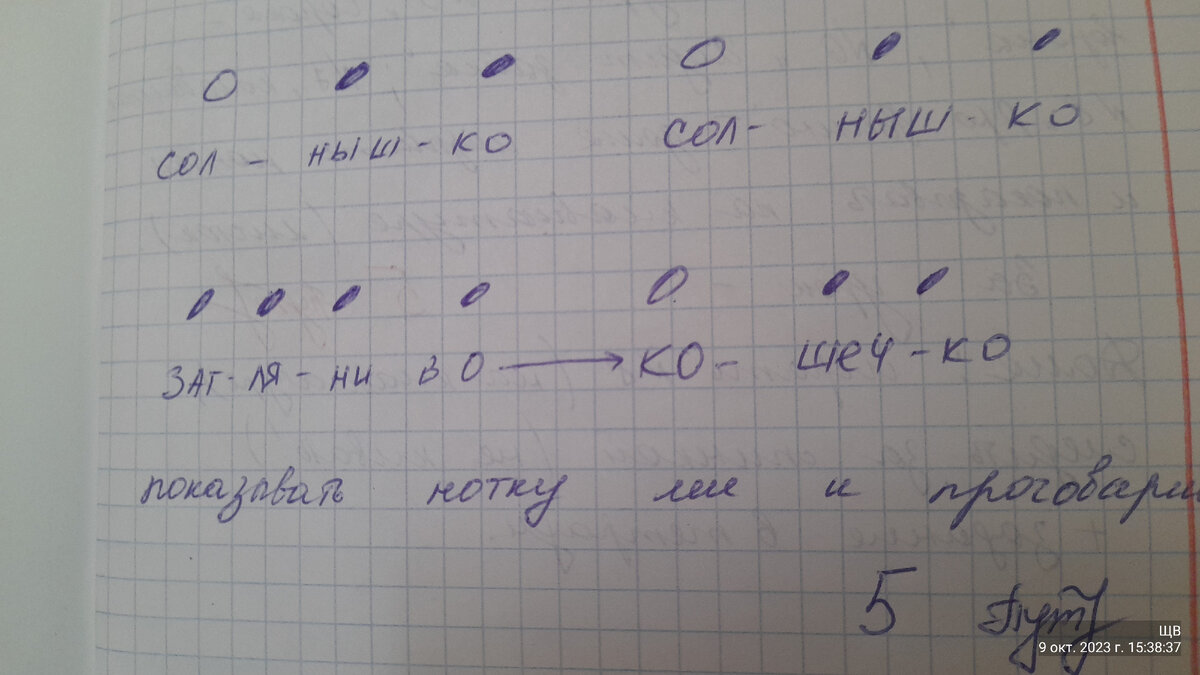 сол - ныш - ко сол - ныш - ко
заг - ля - ни в о → ко - шеч - ко
показывать нотку ми и проговари
5
ЩВ
9 окт. 2023 г. 15:38:37